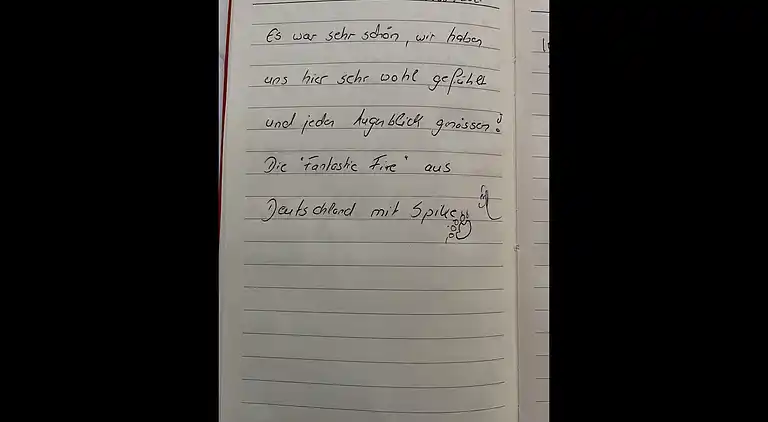 Es war sehr schön, wir haben
uns hier sehr wohl gefühlt
und jeden Augenblick genossen!
Die "Fantastic Five" aus
Deutschland mit Spike